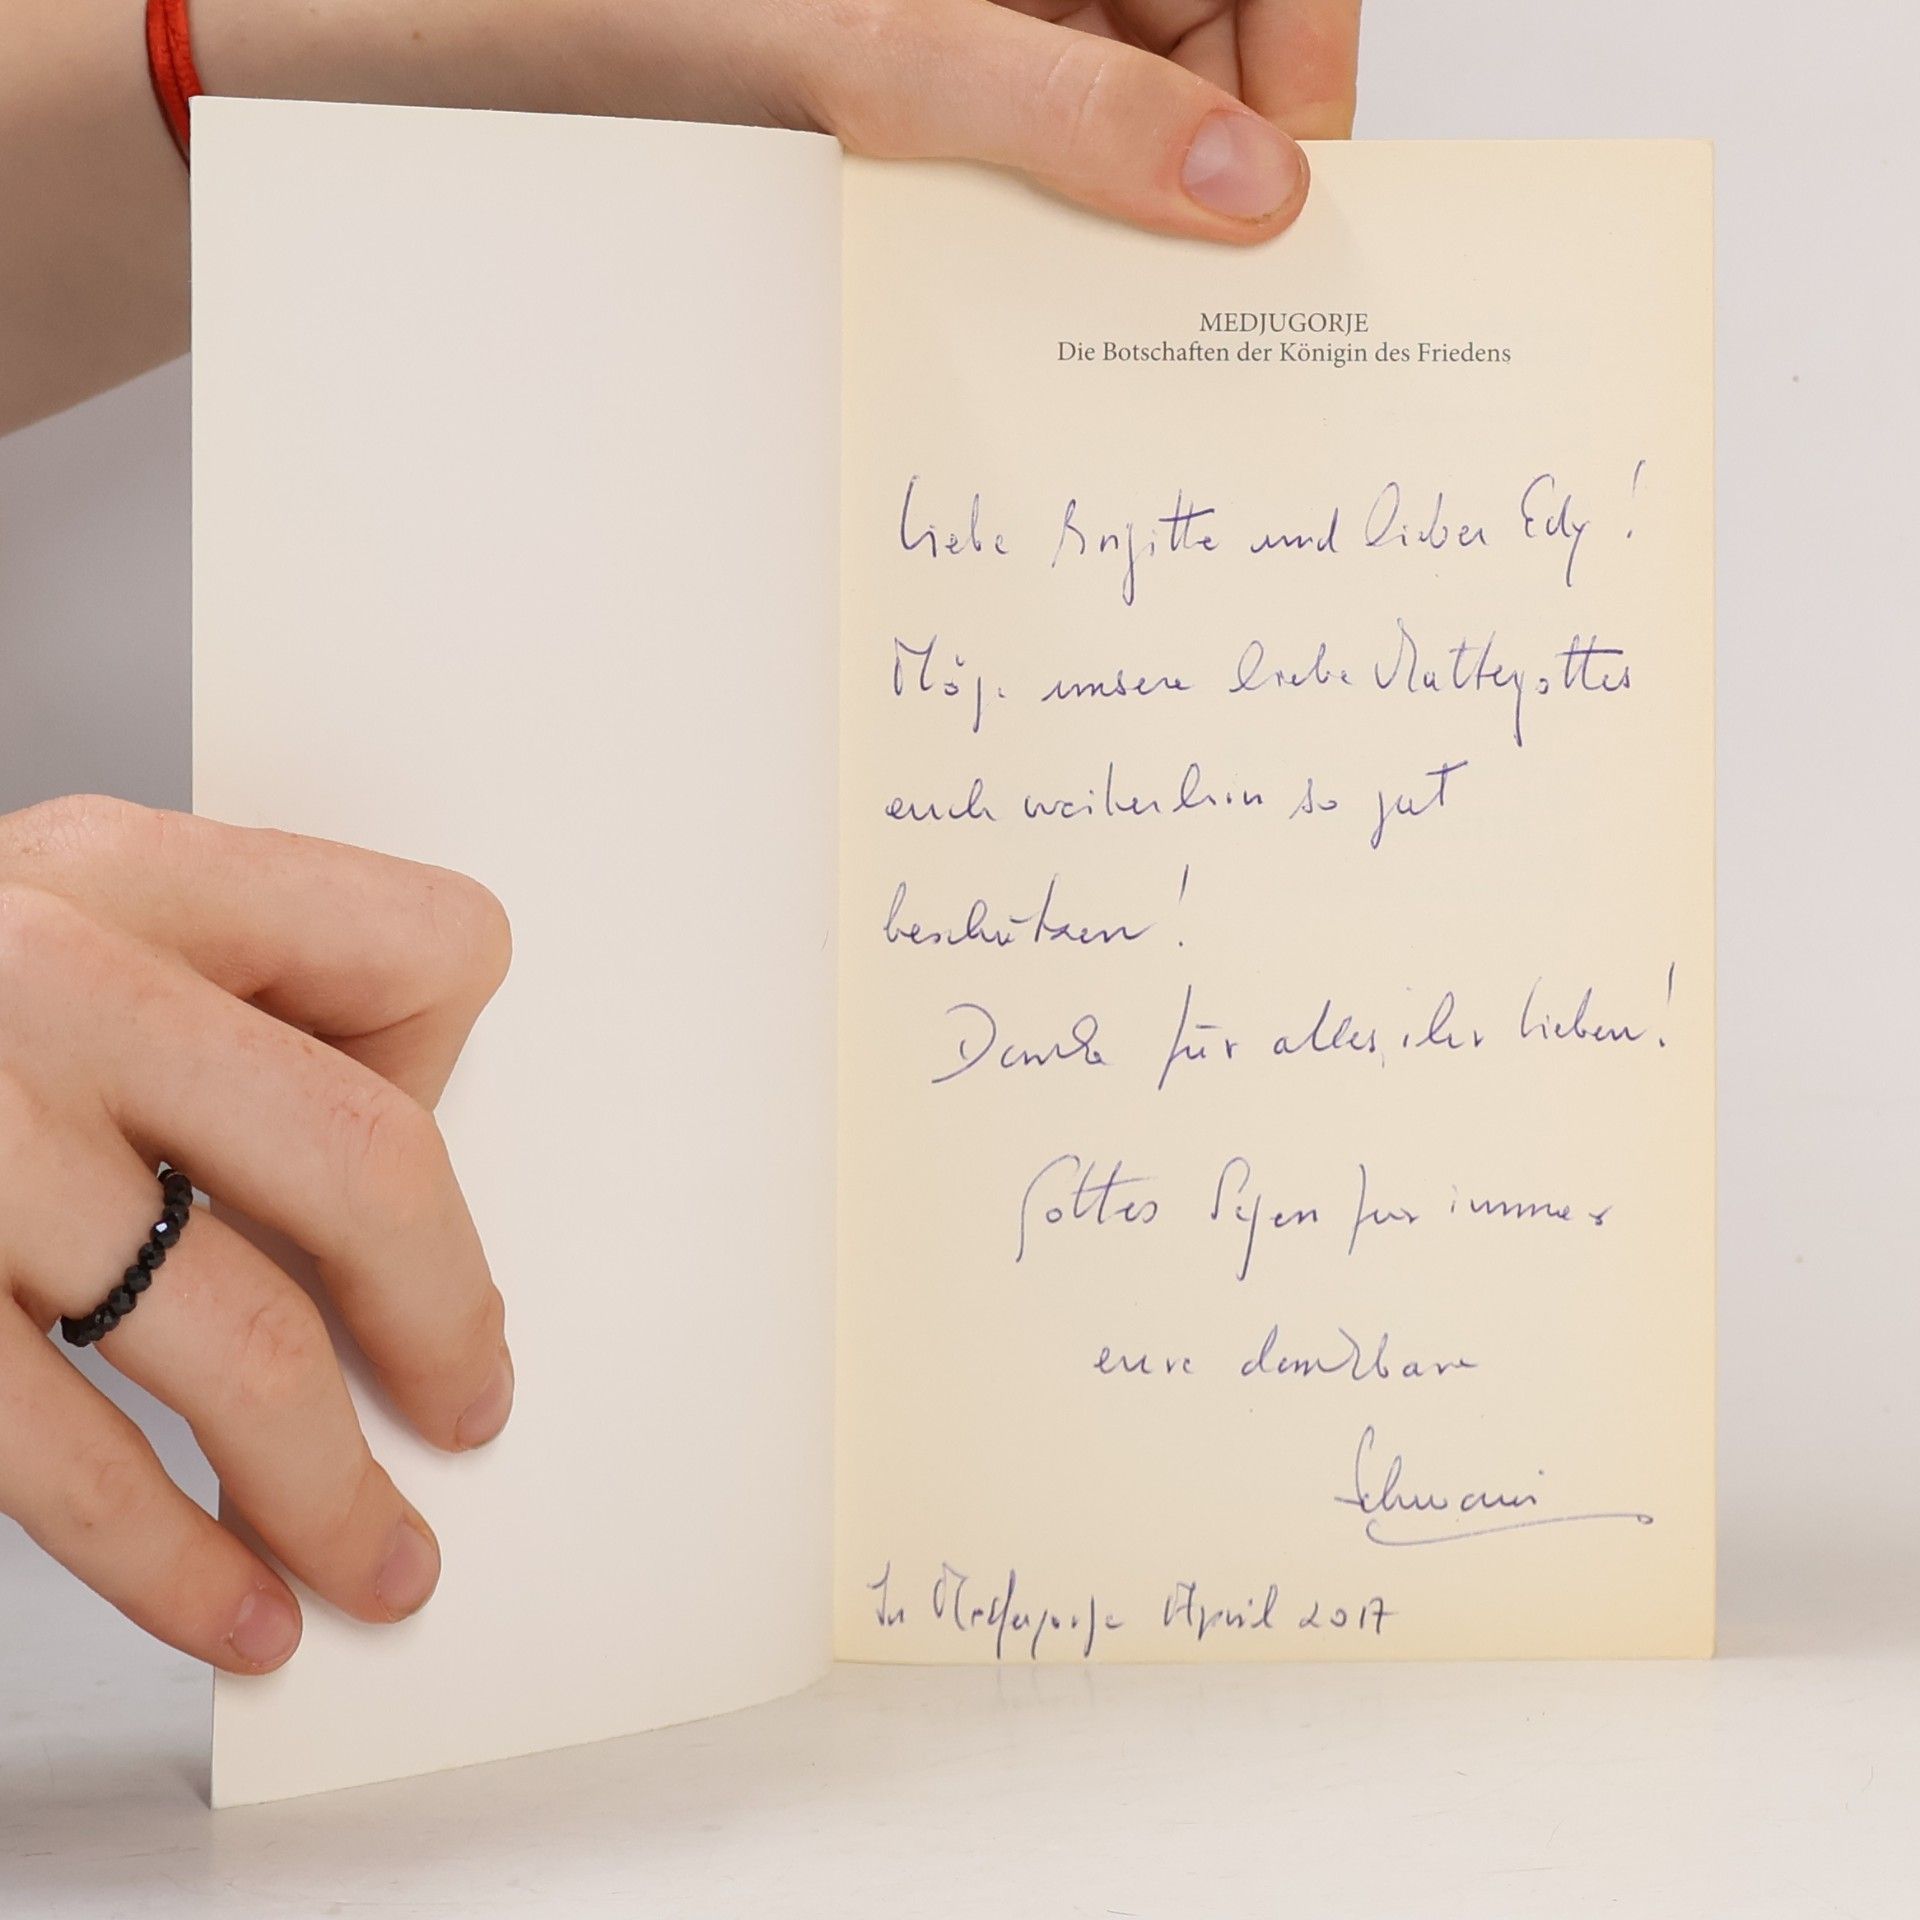 MEDJUGORJE
Die Botschaften der Königin des Friedens
Liebe Brigitte und lieber Edy!
Möge unsere liebe Muttergottes
euch weiterhin so gut
beschützen!
Danke für alles, ihr Lieben!
Gottes Segen für immer
eure dankbare
In Medjugorje April 2017